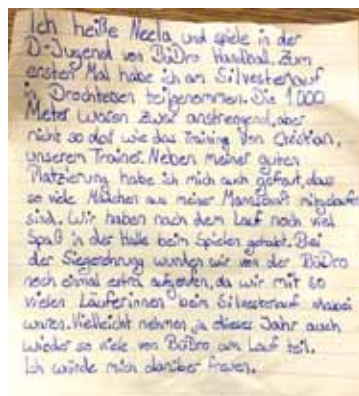 Ich heiße Neela und spiele in der
D-Jugend von BüDro Handball. Zum
ersten Mal habe ich am Silvesterlauf
in Drochtersen teilgenommen. Die 1000
Meter waren zwar anstrengend, aber
nicht so doll wie das Training von Christian,
unserem Trainer. Neben meiner guten
Platzierung habe ich mich auch gefreut, dass
so viele Mädchen aus meiner Mannschaft mitgelaufen
sind. Wir haben nach dem Lauf noch viel
Spaß in der Halle beim Spielen gehabt. Bei
der Siegerehrung wurden wir von der BüDro
noch einmal extra aufgerufen, da wir mit so
vielen Läuferinnen beim Silvesterlauf dabei
waren. Vielleicht nehmen ja dieses Jahr auch
wieder so viele von BüDro am Lauf teil.
Ich würde mich darüber freuen.